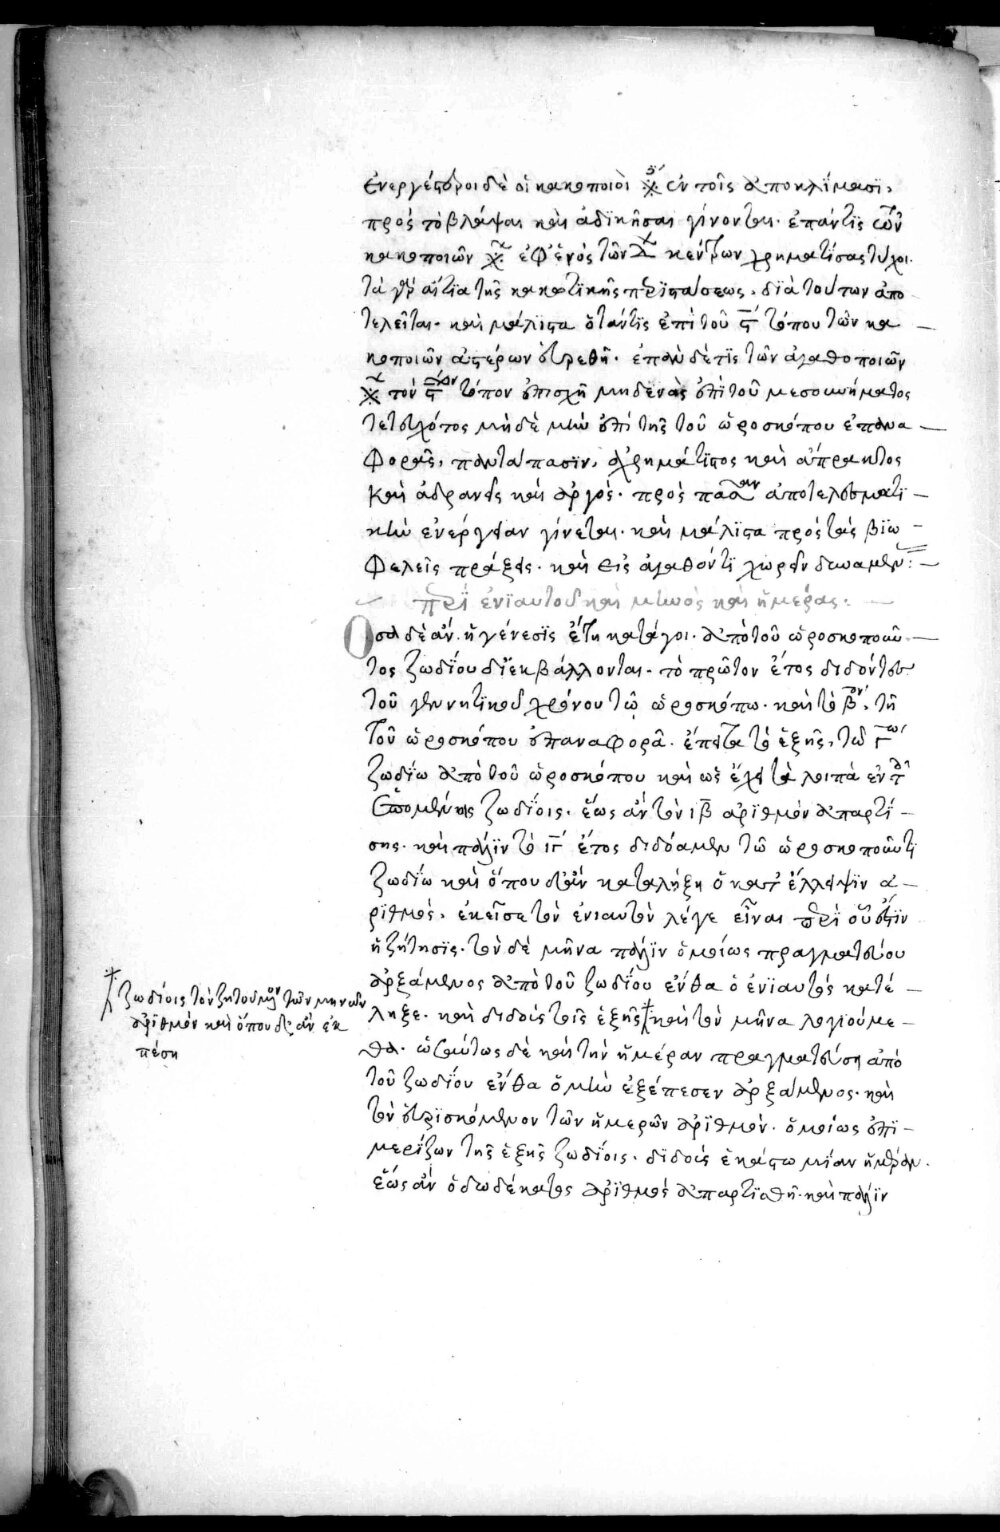 ἐνεργέστεροι δὲ οἱ κακοποιοὶ ἐν τοῖς ἀποκλίμασϊ,
πρὸς τὸ βλάψαι καὶ ἀδικῆσαι γίνονται. ἐπάν τϊς τῶν
κακοποιῶν ἐφ' ἑνὸς τῶν κέντρων χρηματίσας τύχοι.
τὰ γὰρ αἴτϊα τῆς κακωτικῆς περιστάσεως, διὰ τούτων ἀπο
τελεῖται. καὶ μάλϊστα ὅτάν τϊς ἐπὶ τοῦ ϛ τόπου τῶν κα
κοποιῶν ἀστέρων εὑρεθῆ. ἐπὰν δὲ τϊς τῶν ἀγαθοποιῶν
τὸν ϛ τόπον ἐπισχῆ μηδενὸς ἐπὶ τοῦ μεσουρανήματος
τετευχότος μὴ δὲ μὴν ἐπὶ τῆς τοῦ ὡροσκόπου ἐπανα
φορᾶς, παντάπασϊν, ἀχρημάτϊστος καὶ ἄπρακτος
καὶ ἀδρανὴς καὶ ἀργὸς. πρὸς πᾶσαν ἀποτελεσματι
κὴν ἐνέργειαν γίνεται. καὶ μάλϊστα πρὸς τὰς βϊω
φελεῖς πράξεις. καὶ εἰς ἀγαθόν τι χωρεῖν δυναμένην:
περὶ ἐνϊαυτοῦ καὶ μηνὸς καὶ ἡμέρας:
Ὅσα δὲ ἂν ἡ γένεσϊς ἔτη κατάγοι. ἀπὸ τοῦ ὡροσκοποῦν
τος ζωδίου διεκβάλλονται. τὸ πρῶτον ἔτος διδόντες
τοῦ γεννητικοῦ χρόνου τῷ ὡροσκόπω. καὶ τὸ βον, τῆ
τοῦ ὡροσκόπου ἐπαναφορᾶ. ἔπειτα τὸ ἑξῆς, τῶ γω
ζωδΐω ἀπὸ τοῦ ὡροσκόπου καὶ ὡς ἔχει τὰ λοιπὰ ἐν τοῖς
ἑπομένοις ζωδΐοις. ἕως ἂν τὸν ιβ ἀριθμὸν ἀπαρτί
σης. καὶ πάλϊν τὸ ιγ ἔτος διδόαμεν τῶ ὡροσκοποῦντι
ζωδίω καὶ ὅπου δ' ἂν καταλήξη ὁ κατ' ἔλλειψϊν ἀ
ριθμός. ἐκεῖσε τὸν ἐνιαυτὸν λέγε εἶναι περὶ οὗ ἐστϊν
ἡ ζήτησϊς. τὸν δὲ μῆνα πάλϊν ὁμοίως πραγματεύου
ἀρξάμενος ἀπὸ τοῦ ζωδΐου ἔνθα ὁ ἐνϊαυτὸς κατέ
ληξε. καὶ διδοὺς τοῖς ἑξῆς καὶ τὸν μῆνα λογιούμε
θα. ὡσαύτως δὲ καὶ τὴν ἡμέραν πραγματεύση ἀπὸ
τοῦ ζωδΐου ἔνθα ὁ μὴν ἐξέπεσεν ἀρξάμενος. καὶ
τὸν εὑρϊσκόμενον τῶν ἡμερῶν ἀρϊθμὸν. ὁμοίως ἐπι
μερίζων τοῖς ἑξῆς ζωδίοις. διδοὺς ἑκάστω μίαν ἡμέραν.
ἕως ἂν ὁ δωδέκατος ἀρϊθμὸς ἀπαρτϊσθῆ. καὶ πάλϊν
ζωδίοις τὸν ζητούμενον τῶν μηνῶν
ἀρϊθμὸν καὶ ὅπου δ' ἂν ἐκ
πέση